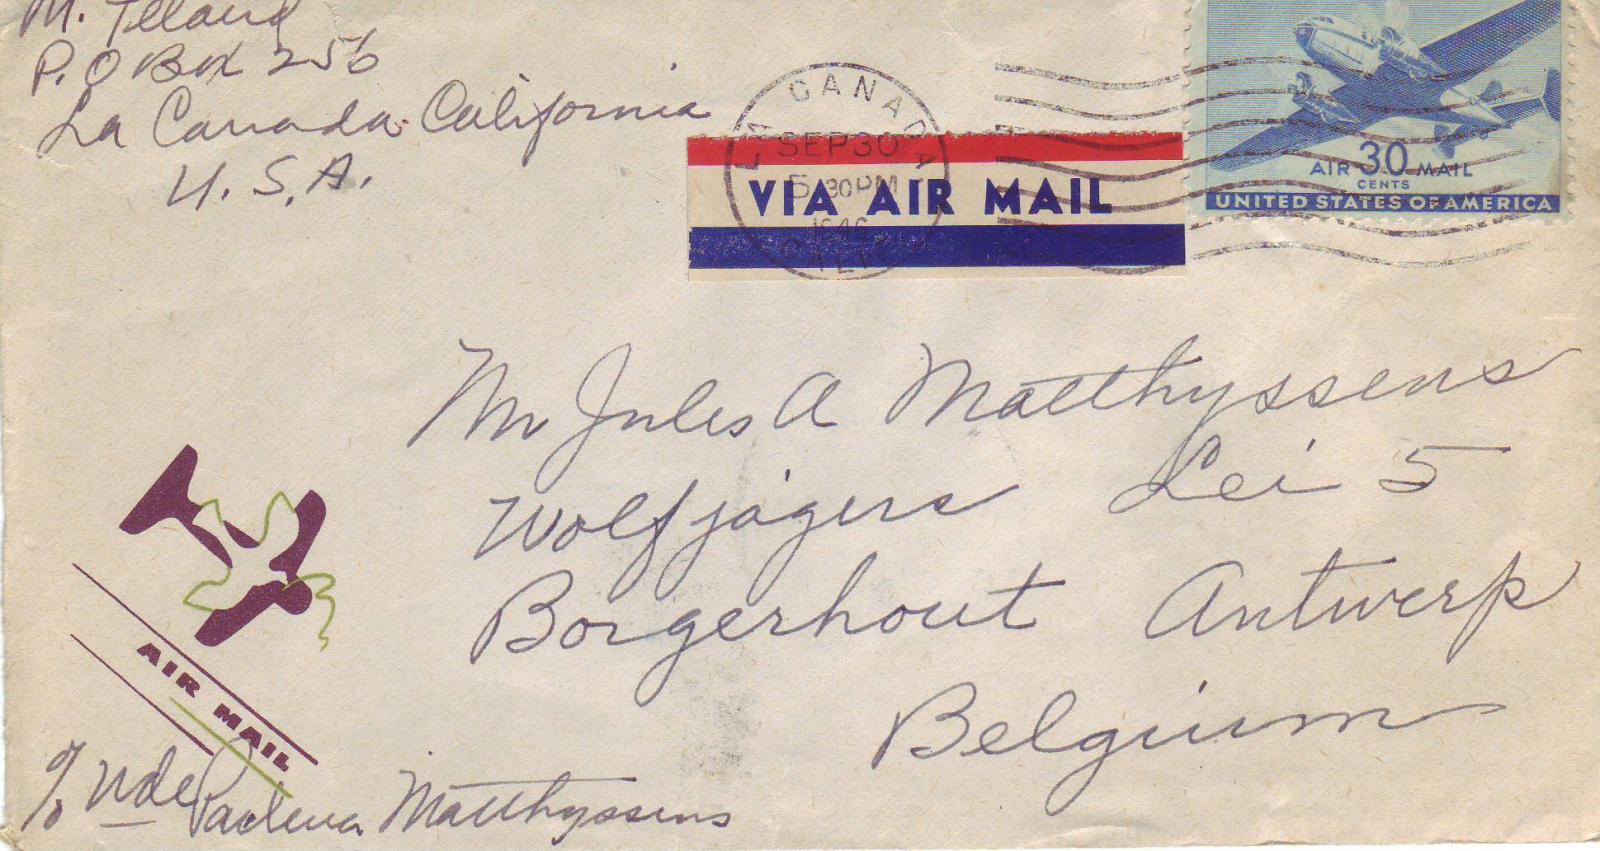 M. Telland
P.O Box 256
La Canada California
U.S.A.
LA CANADA
SEP 30
5 30 PM
1946
CALIF.
VIA AIR MAIL
AIR 30 MAIL
CENTS
UNITED STATES OF AMERICA
Mr Jules A Matthyssens
Wolfjägers Lei 5
Borgerhout Antwerp
Belgium
AIR MAIL
% Matthyssens